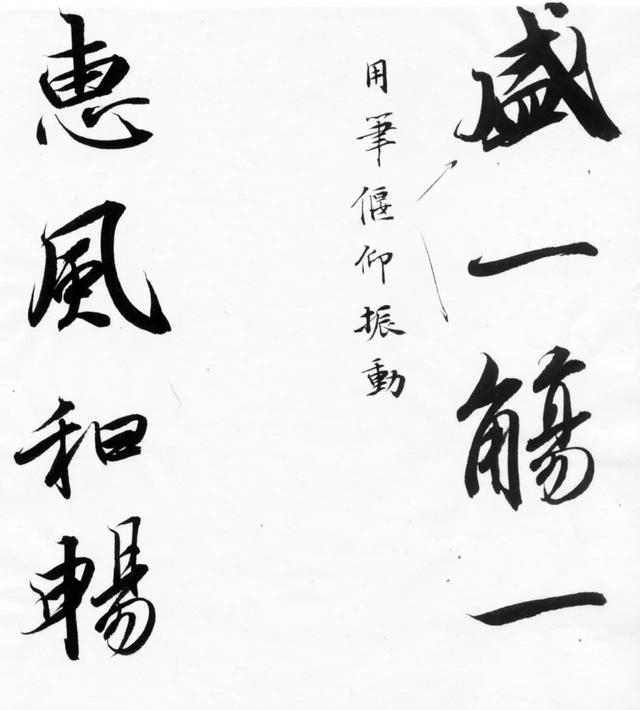 盛一觴一
用筆偃仰振動
惠風和暢